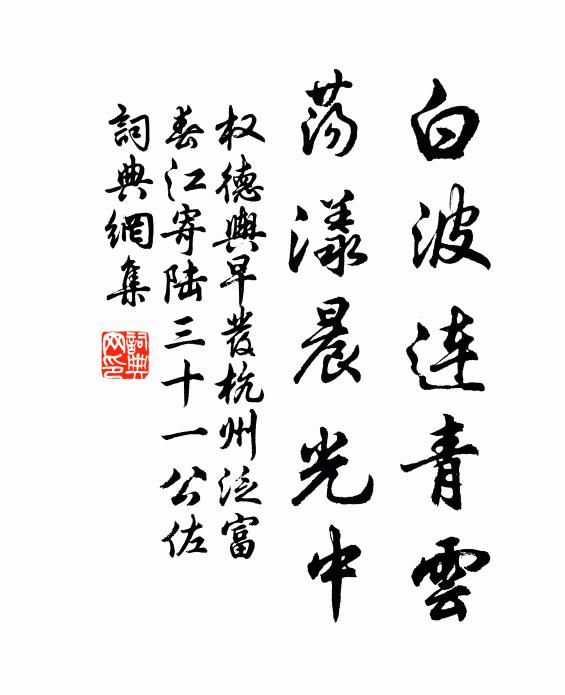 白波連青雲
蕩漾晨光中
权德輿早發杭州泛富
春江寄陸三十一公佐
詞典網集
詞典网印